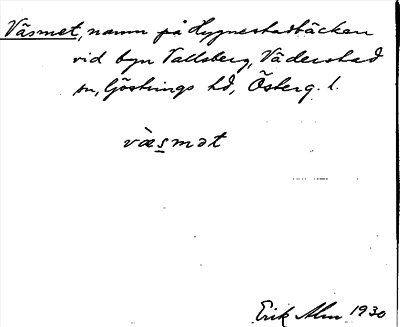 Väsmet, namn på Hygnestadbäcken
vid byn Tallsberg, Väderstad
sn, Göstrings hd, Österg. l.
væ̀smət
Erik Alm 1930